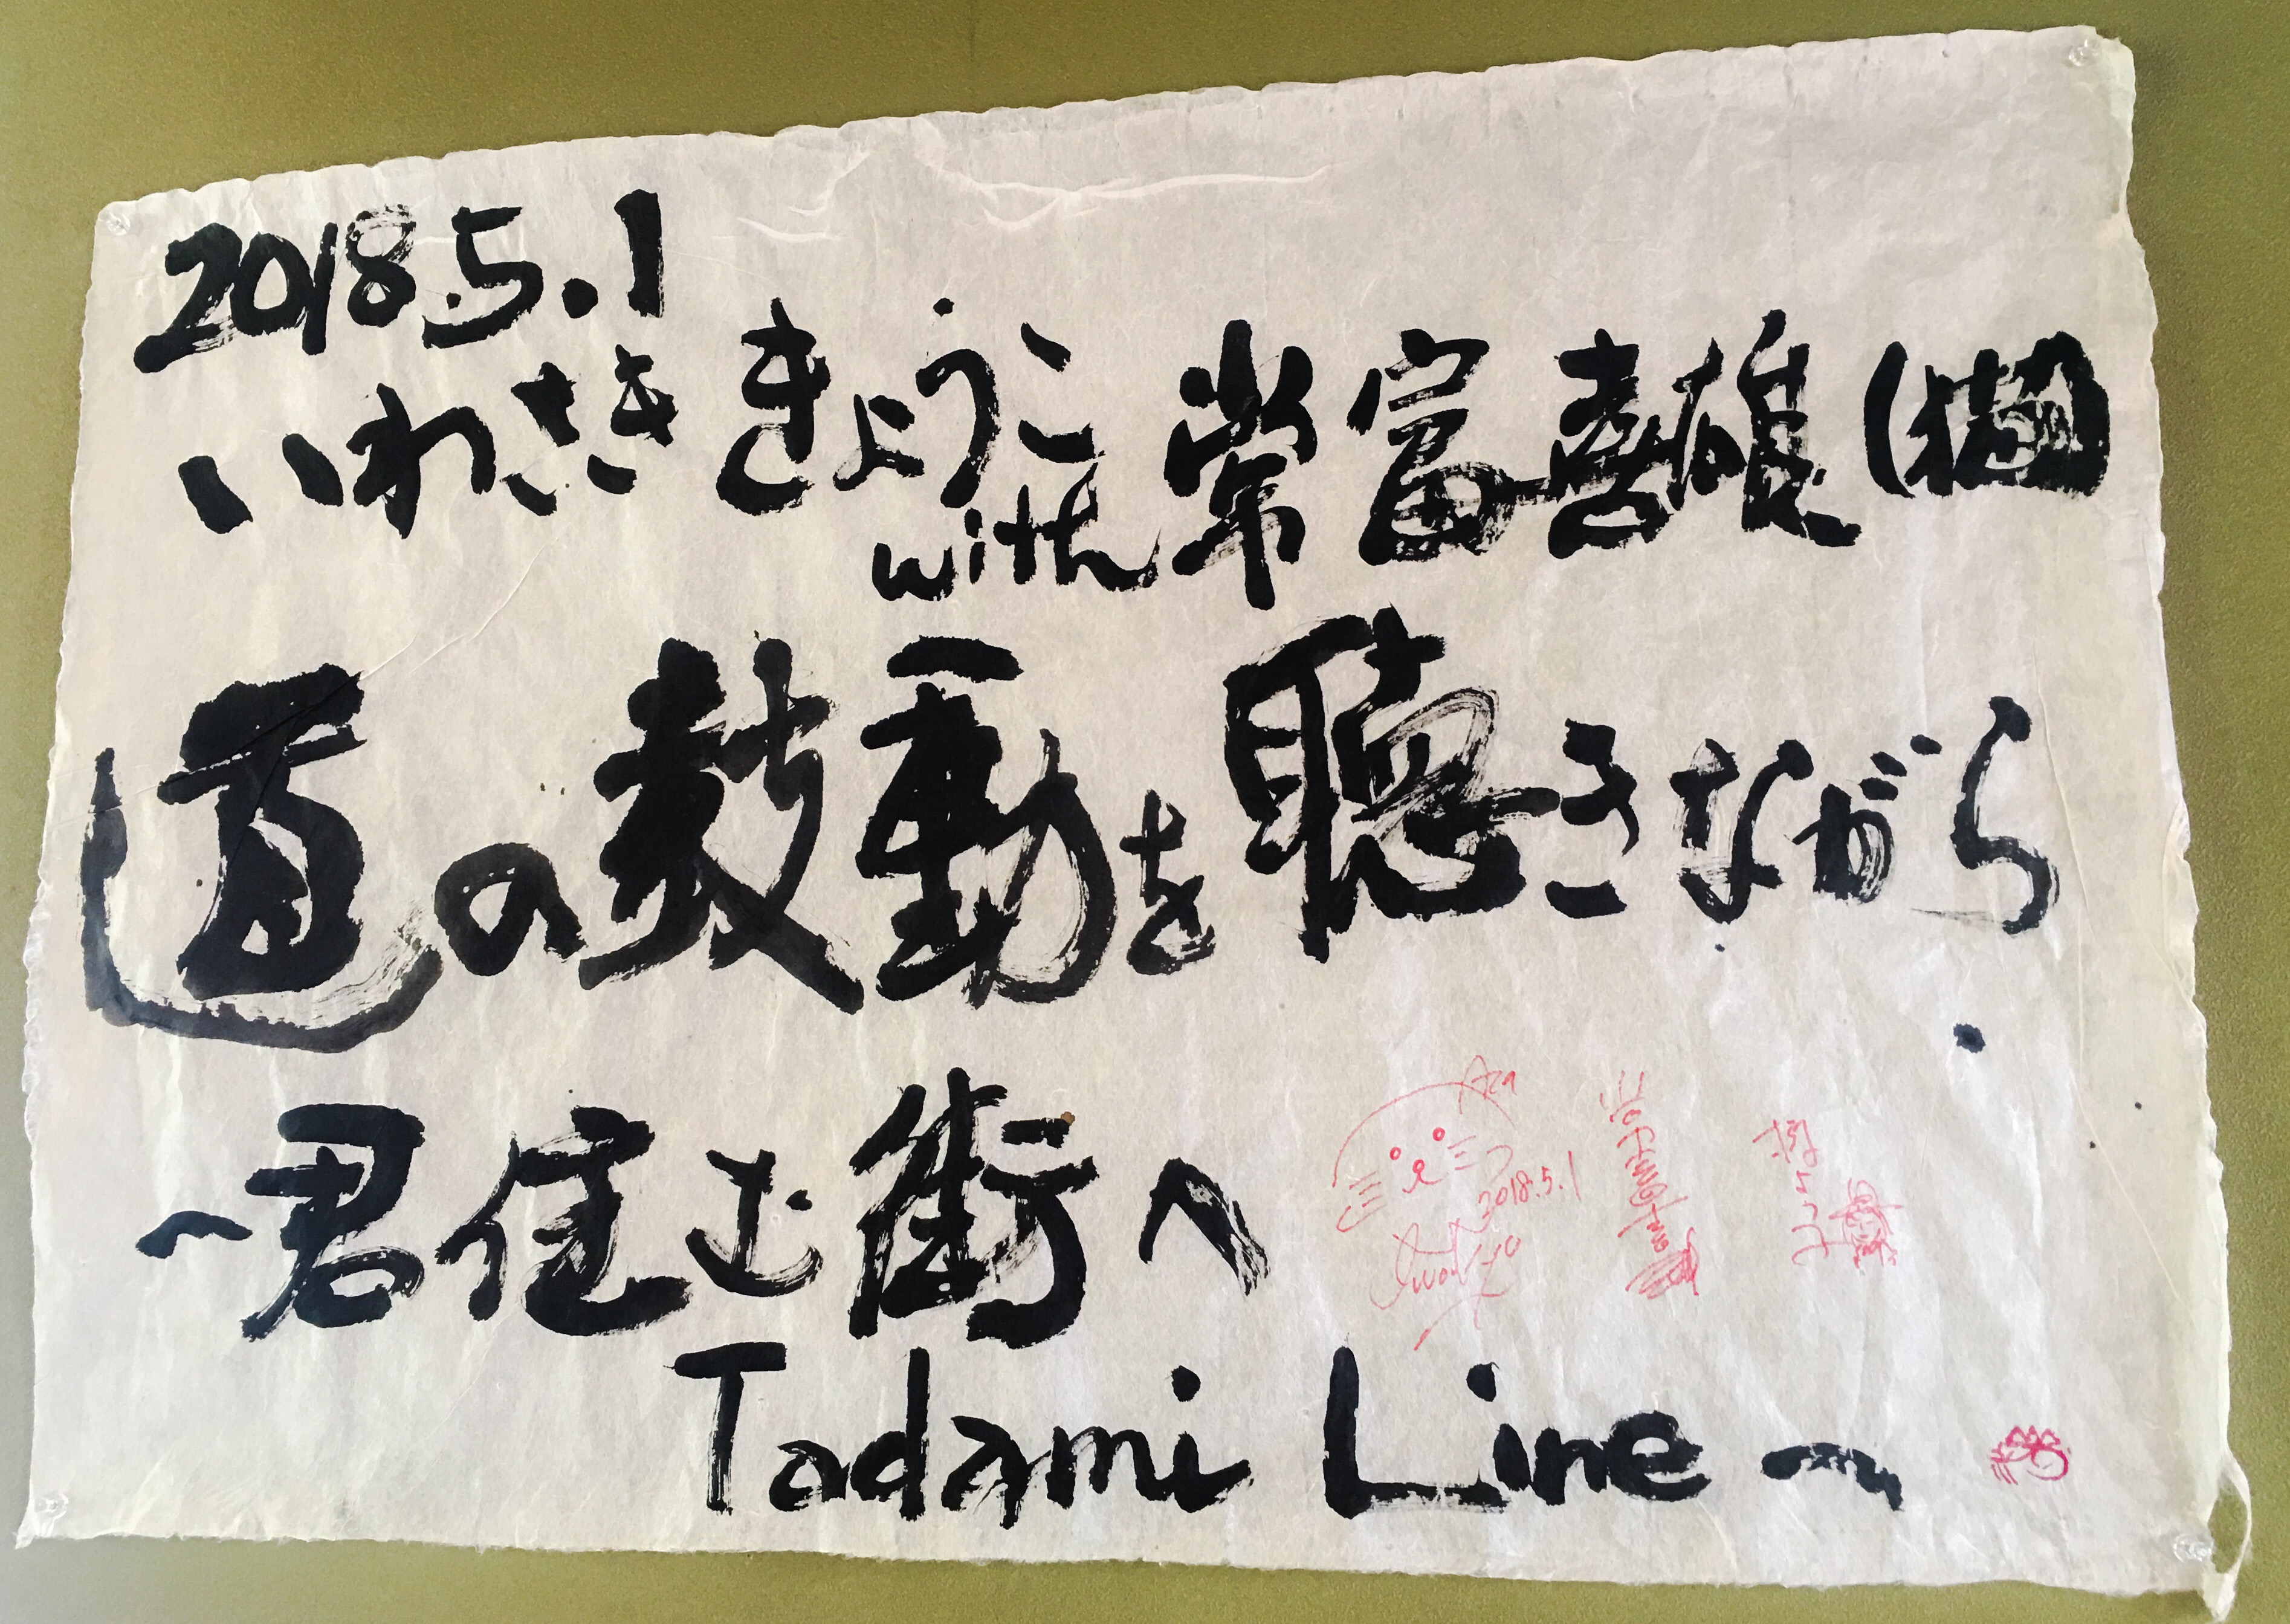 2018.5.1
いわさききょうこ with 常富喜雄(猫)
道の鼓動を聴きながら
~君住む街へ
Tadami Line~
2018.5.1